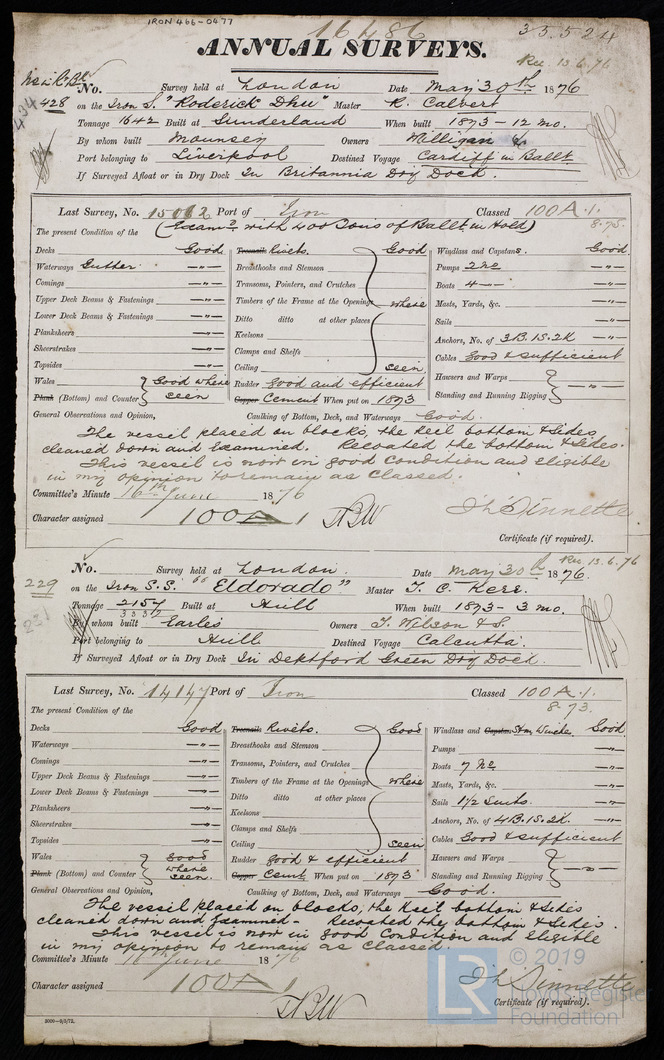 IRON 466-0477
16486
35524
ANNUAL SURVEYS.
Rec. 13.6.76
No. Survey held at London Date May 30th 1876
428 on the Iron S. "Roderick Dhu" Master R. Calvert
Tonnage 1642 Built at Sunderland When built 1873 - 12 mo.
By whom built Mounsey Owners Milligan &c
Port belonging to Liverpool Destined Voyage Cardiff in Ballt
If Surveyed Afloat or in Dry Dock In Britannia Dry Dock.
Last Survey, No. 15062 Port of Iron Classed 100A.1.
8.75
The present Condition of the (Examd with 400 Tons of Ballt in Hold)
Decks Good Treenails Rivets. Good Windlass and Capstans. Good
Waterways Gutter -"- Breasthooks and Stemson Pumps 2 No -"-
Comings -"- Transoms, Pointers, and Crutches Boats 4 -"-
Upper Deck Beams & Fastenings -"- Timbers of the Frame at the Openings where Masts, Yards, &c. -"-
Lower Deck Beams & Fastenings -"- Ditto ditto at other places Sails -"-
Planksheers -"- Keelsons Anchors, No. of 3B.1S.2K -"-
Sheerstrakes -"- Clamps and Shelfs Cables Good & sufficient
Topsides -"- Ceiling seen Hawsers and Warps
Wales Good where Rudder Good and efficient Standing and Running Rigging -"-
Plank (Bottom) and Counter seen Copper Cement When put on 1873
General Observations and Opinion, Caulking of Bottom, Deck, and Waterways Good.
The vessel placed on blocks, the keel bottom & sides
cleaned down and Examined. Recoated the bottom & sides.
This vessel is now in good condition and eligible
in my opinion to remain as Classed.
Committee's Minute 16th June 1876
Character assigned 100A1
Certificate (if required).
Rec. 13.6.76
No. Survey held at London. Date May 30th 1876.
229 on the Iron S.S. "Eldorado" Master T. C. Kerr.
Tonnage 2157 Built at Hull When built 1873 - 3 mo.
3337
By whom built Earles Owners T. Wilson & S.
Port belonging to Hull Destined Voyage Calcutta.
If Surveyed Afloat or in Dry Dock In Deptford Green Dry Dock.
Last Survey, No. 14147 Port of Iron Classed 100A.1.
8.73.
The present Condition of the
Decks Good Treenails Rivets. Good Windlass and Capstan Stm Winche Good
Waterways -"- Breasthooks and Stemson Pumps -"-
Comings -"- Transoms, Pointers, and Crutches Boats 7 No -"-
Upper Deck Beams & Fastenings -"- Timbers of the Frame at the Openings where Masts, Yards, &c. -"-
Lower Deck Beams & Fastenings -"- Ditto ditto at other places Sails 1½ Suits. -"-
Planksheers -"- Keelsons Anchors, No. of 4B.1S.2K. -"-
Sheerstrakes -"- Clamps and Shelfs Cables Good & sufficient
Topsides -"- Ceiling seen Hawsers and Warps
Wales Good where Rudder good & efficient Standing and Running Rigging -"-
Plank (Bottom) and Counter seen. Copper Cemt When put on 1873
General Observations and Opinion, Caulking of Bottom, Deck, and Waterways Good.
The vessel placed on blocks, the Keel bottom & sides
cleaned down and Examined - Recoated the bottom & sides.
This vessel is now in good Condition and Eligible
in my opinion to remain as Classed.
Committee's Minute 16th June 1876
Character assigned 100A1
Certificate (if required).
2000-9/5/72.
LR © 2019
Lloyd's Register
Foundation